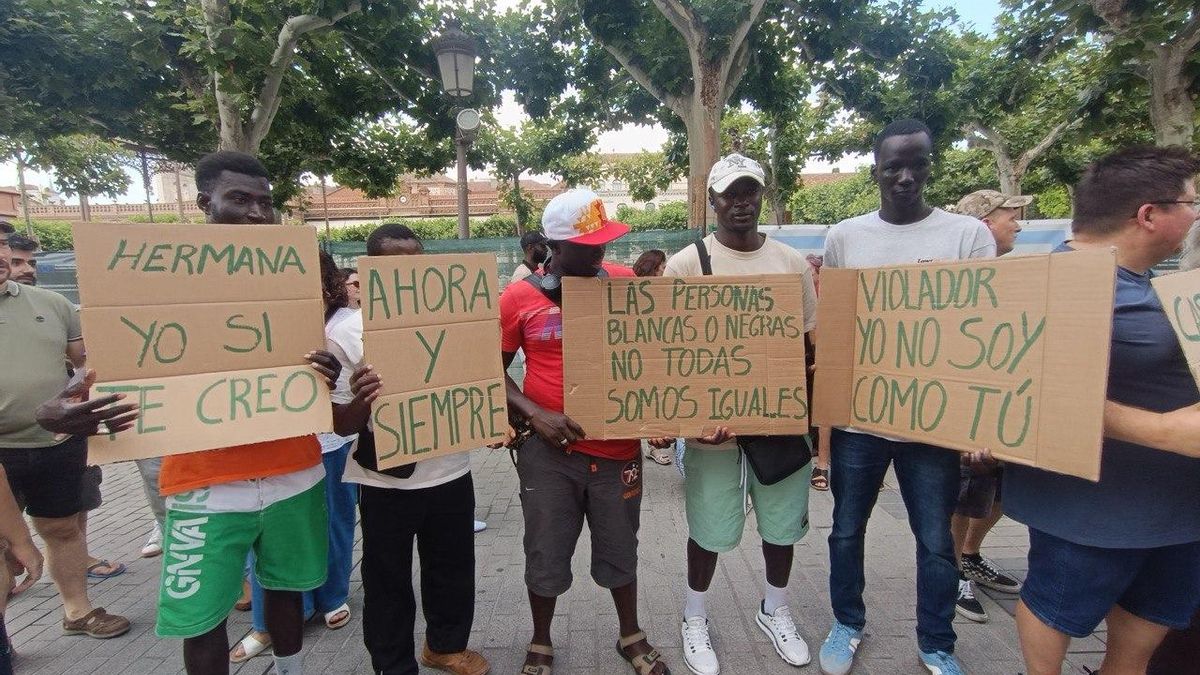 HERMANA
YO SI
TE CREO
AHORA
Y
SIEMPRE
LAS PERSONAS
BLANCAS O NEGRAS
NO TODAS
SOMOS IGUALES
VIOLADOR
YO NO SOY
COMO TÚ